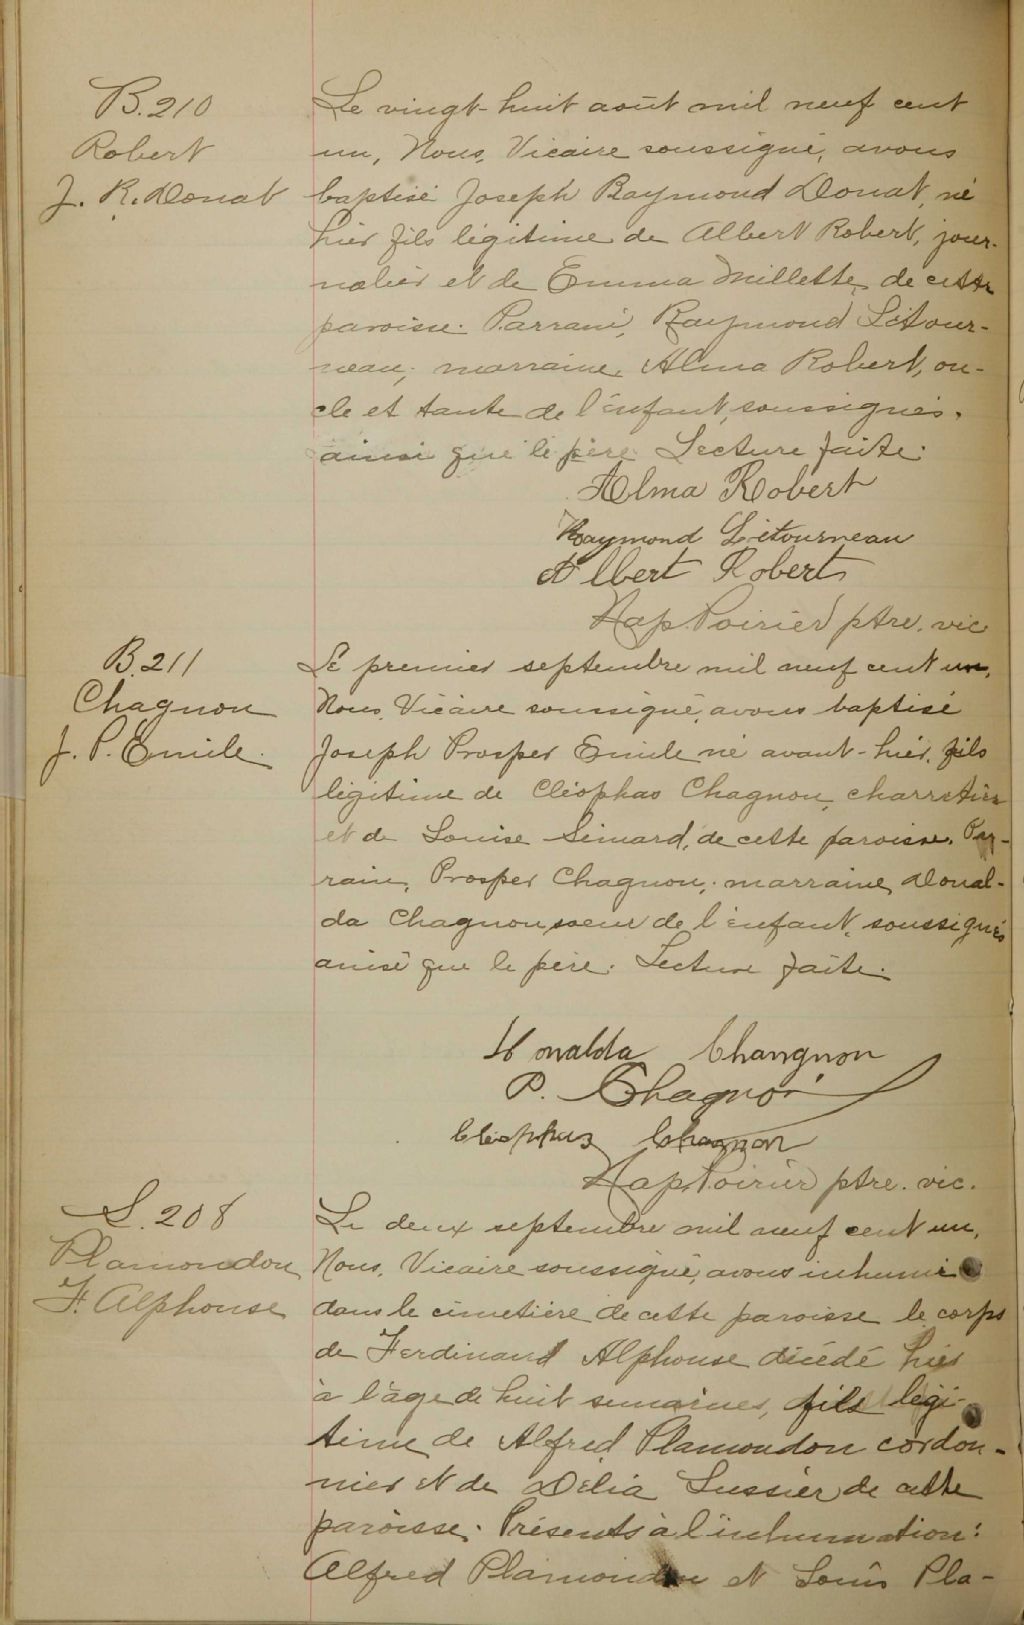 B.210
Robert
J. R. Donat
Le vingt-huit août mil neuf cent
un, Nous, Vicaire soussigné, avons
baptisé Joseph Raymond Donat, né
hier fils légitime de Albert Robert, jour-
nalier et de Emma Millette, de cette
paroisse. Parrain, Raymond Létour-
neau; marraine, Alma Robert, on-
cle et tante de l'enfant, soussignés.
ainsi que le père. Lecture faite.
Alma Robert
Raymond Létourneau
Albert Robert
Nap. Poirier ptre. vic
B.211
Chagnon
J. P. Emile.
Le premier septembre mil neuf cent un,
Nous, Vicaire soussigné, avons baptisé
Joseph Prosper Emile né avant-hier, fils
légitime de Cléophas Chagnon, charretier
et de Louise Simard, de cette paroisse. Par-
rain, Prosper Chagnon; marraine, Donal-
da Chagnon, soeur de l'enfant, soussignés
ainsi que le père. Lecture faite.
Donalda Changnon
P. Chagnon
Cléophas Chagnon
Nap. Poirier ptre. vic.
S. 208
Plamondon
F. Alphonse
Le deux septembre mil neuf cent un,
Nous, Vicaire soussigné, avons inhumé
dans le cimetière de cette paroisse le corps
de Ferdinand Alphonse décédé hier
à l'âge de huit semaines, fils légi-
time de Alfred Plamondon cordon-
nier et de Délia Lussier de cette
paroisse. Présents à l'inhumation:
Alfred Plamondon et Louis Pla-